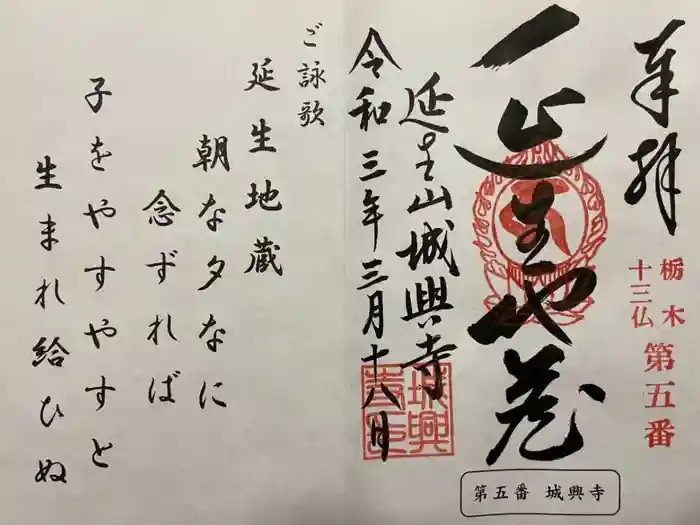 奉拝
栃木
十三仏
第五番
延生地蔵
延生山城興寺
令和三年三月十八日
第五番 城興寺
ご詠歌
延生地蔵
朝な夕なに
念ずれば
子をやすやすと
生まれ給ひぬ